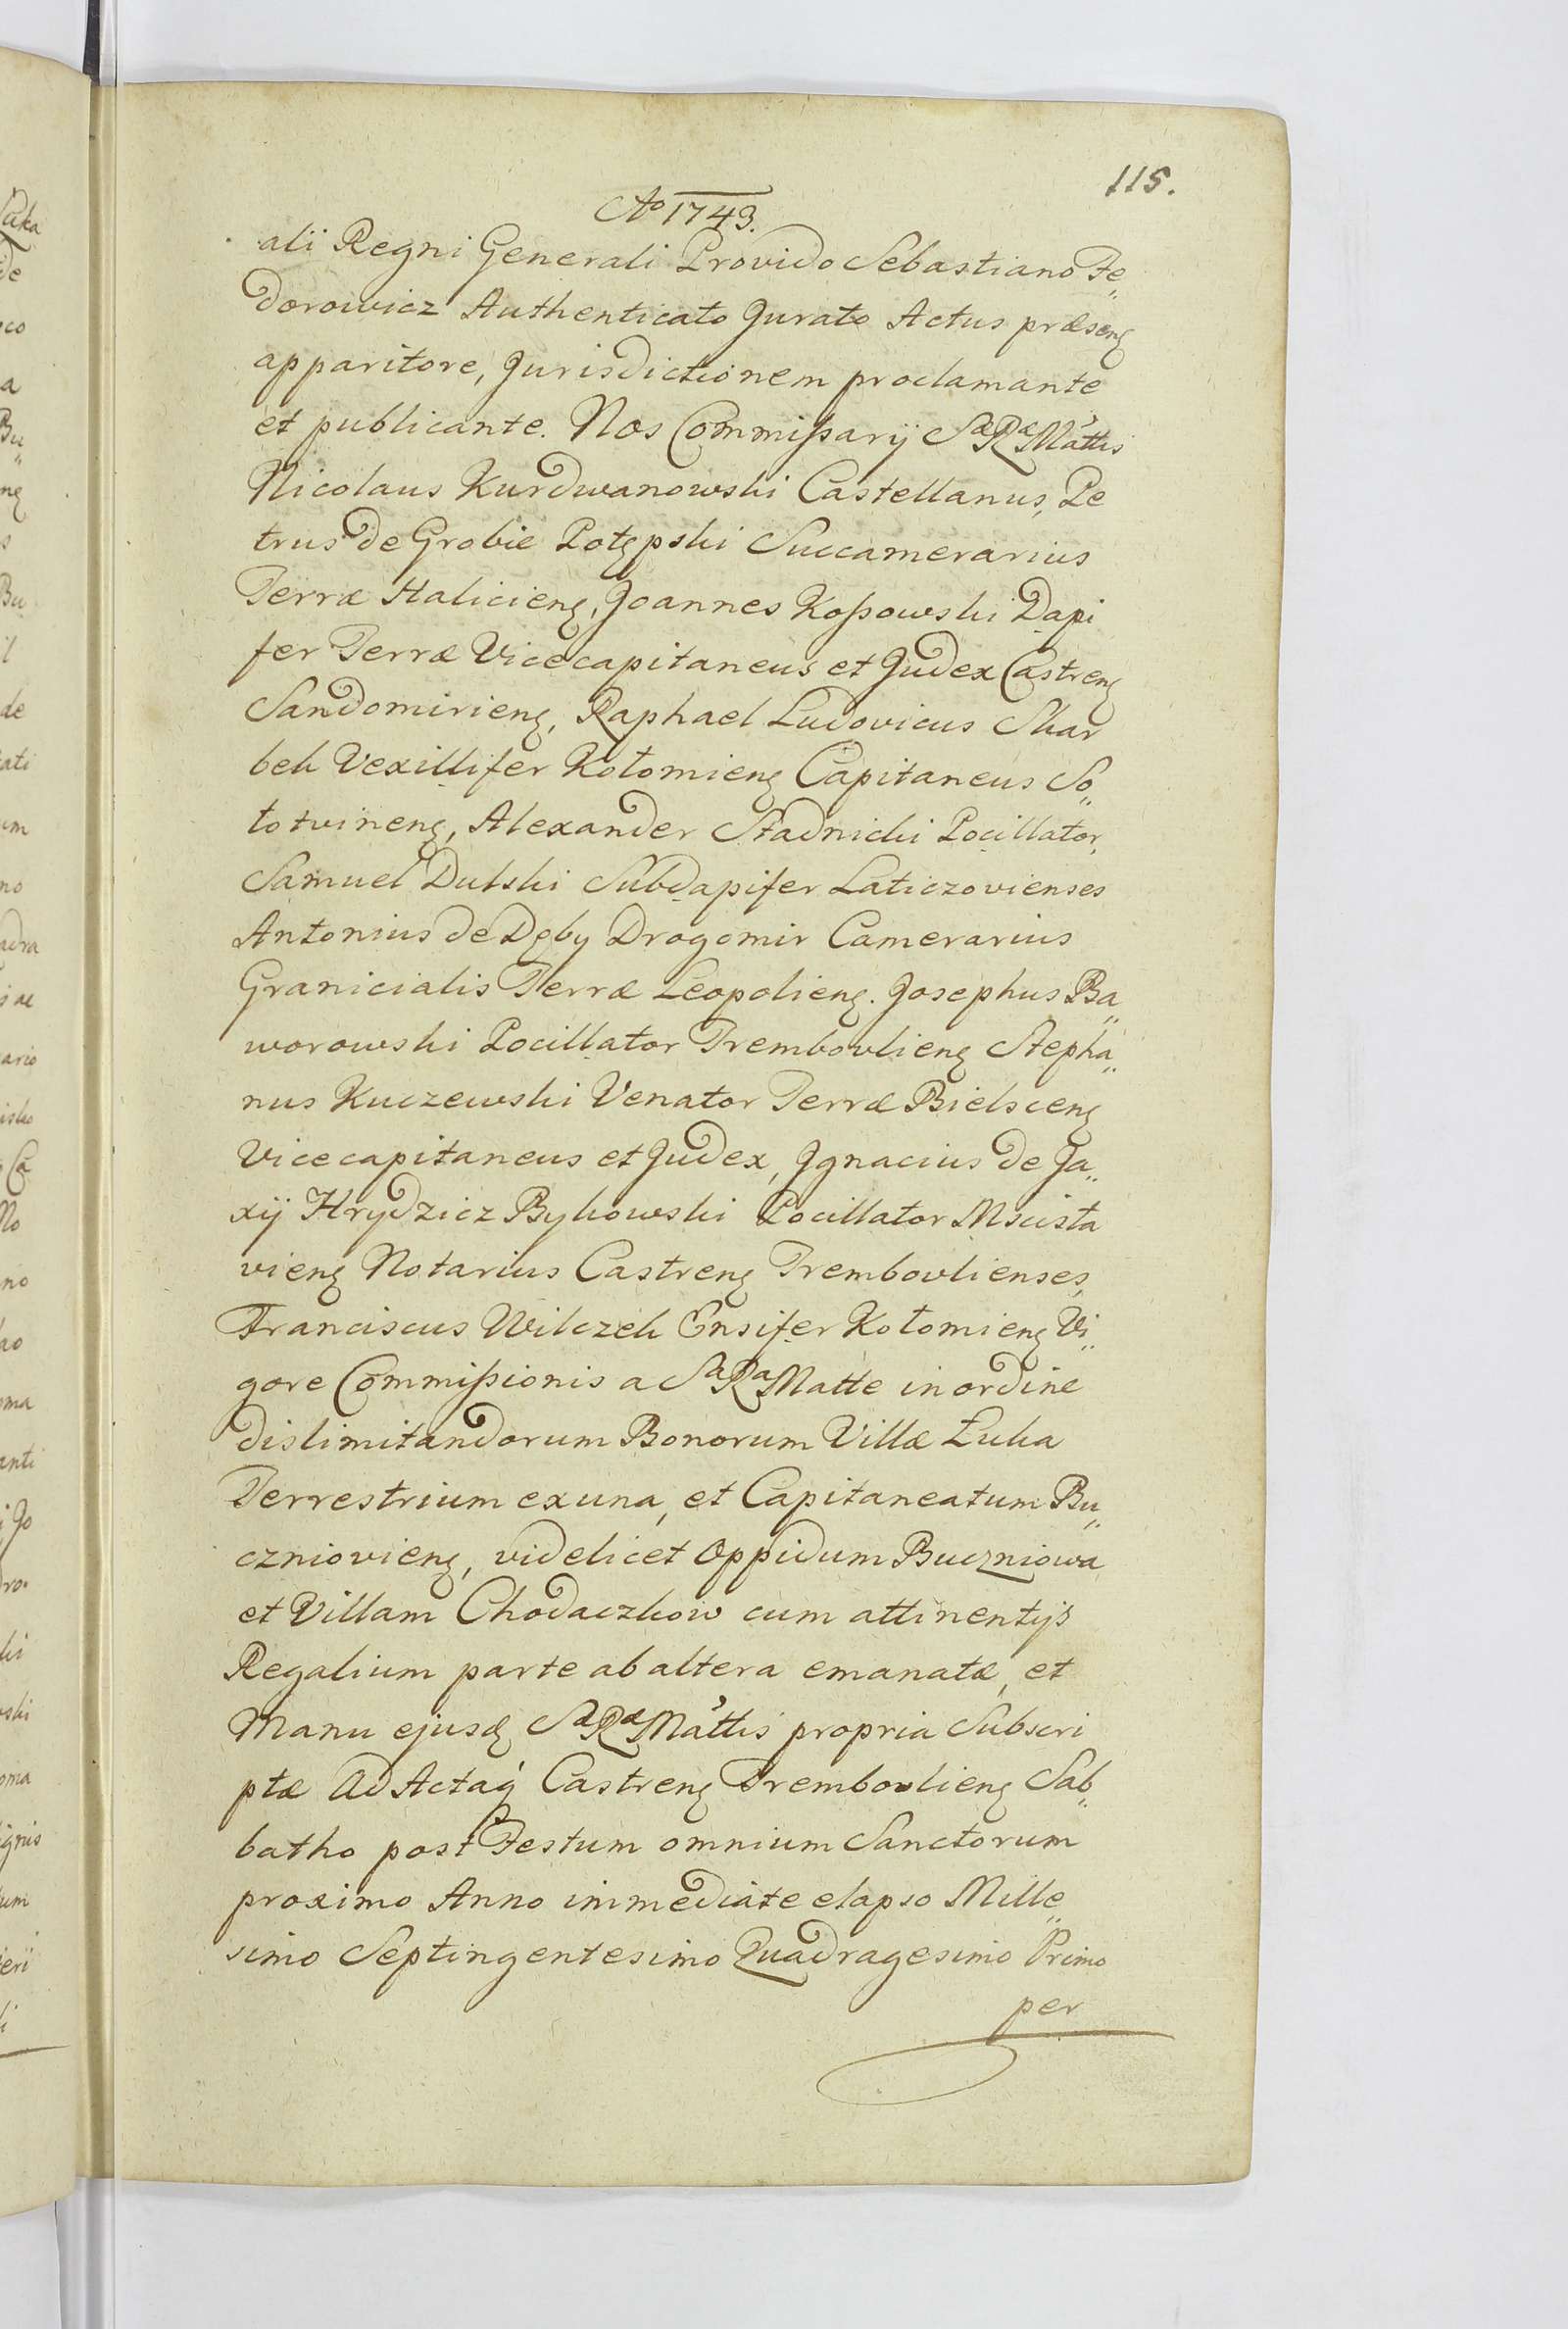 115.
Ao 1743.
ali Regni Generali Provido Sebastiano Fe„
dorowicz Authenticato Jurato Actus præsenȩ
apparitore, Jurisdictionem proclamante
et publicante. Nos Commißarij Sæ Ræ Mattis
Nicolaus Kurdwanowski Castellanus, Pe
trus de Grobie Potępski Succamerarius
Terræ Halicienȩ, Joannes Koßowski Dapi
fer Terræ Vicecapitaneus et Judex Castrenȩ
Sandomirienȩ, Raphael Ludovicus Skar
bek Vexillifer Kołomienȩ Capitaneus So„
łotvinenȩ, Alexander Stadnicki Pocillator,
Samuel Dulski Subdapifer Laticzovienses
Antonius de Dęby Drogomir Camerarius
Granicialis Terræ Leopolienȩ. Josephus Ba„
worowski Pocillator Trembovlienȩ Stepha„
nus Kuczewski Venator Terræ Bielscenȩ
Vicecapitaneus et Judex, Jgnacius de Ja„
xij Hrydzicz Bykowski Pocillator Mscisła
vienȩ Notarius Castrenȩ Trembovlienses,
Franciscus Wilczek Ensifer Kołomienȩ Vi„
gore Commißionis a Sa Ra Matte in ordine
dislimitandorum Bonorum Villæ Łuka
Terrestrium ex una, et Capitaneatum Bu„
cznioviene, videlicet Oppidum Buczniowa
et Villam Chodaczkow cum attinentijs
Regalium parte ab altera emanatæ, et
Manu ejusd Sæ Ræ Mattis propria Subscri
ptæ Ad Actaq Castrenȩ Trembovlienȩ Sab„
batho post Festum omnium Sanctorum
proximo Anno immediate elapso Mille„
simo Septingentesimo Quadragesimo Primo
per